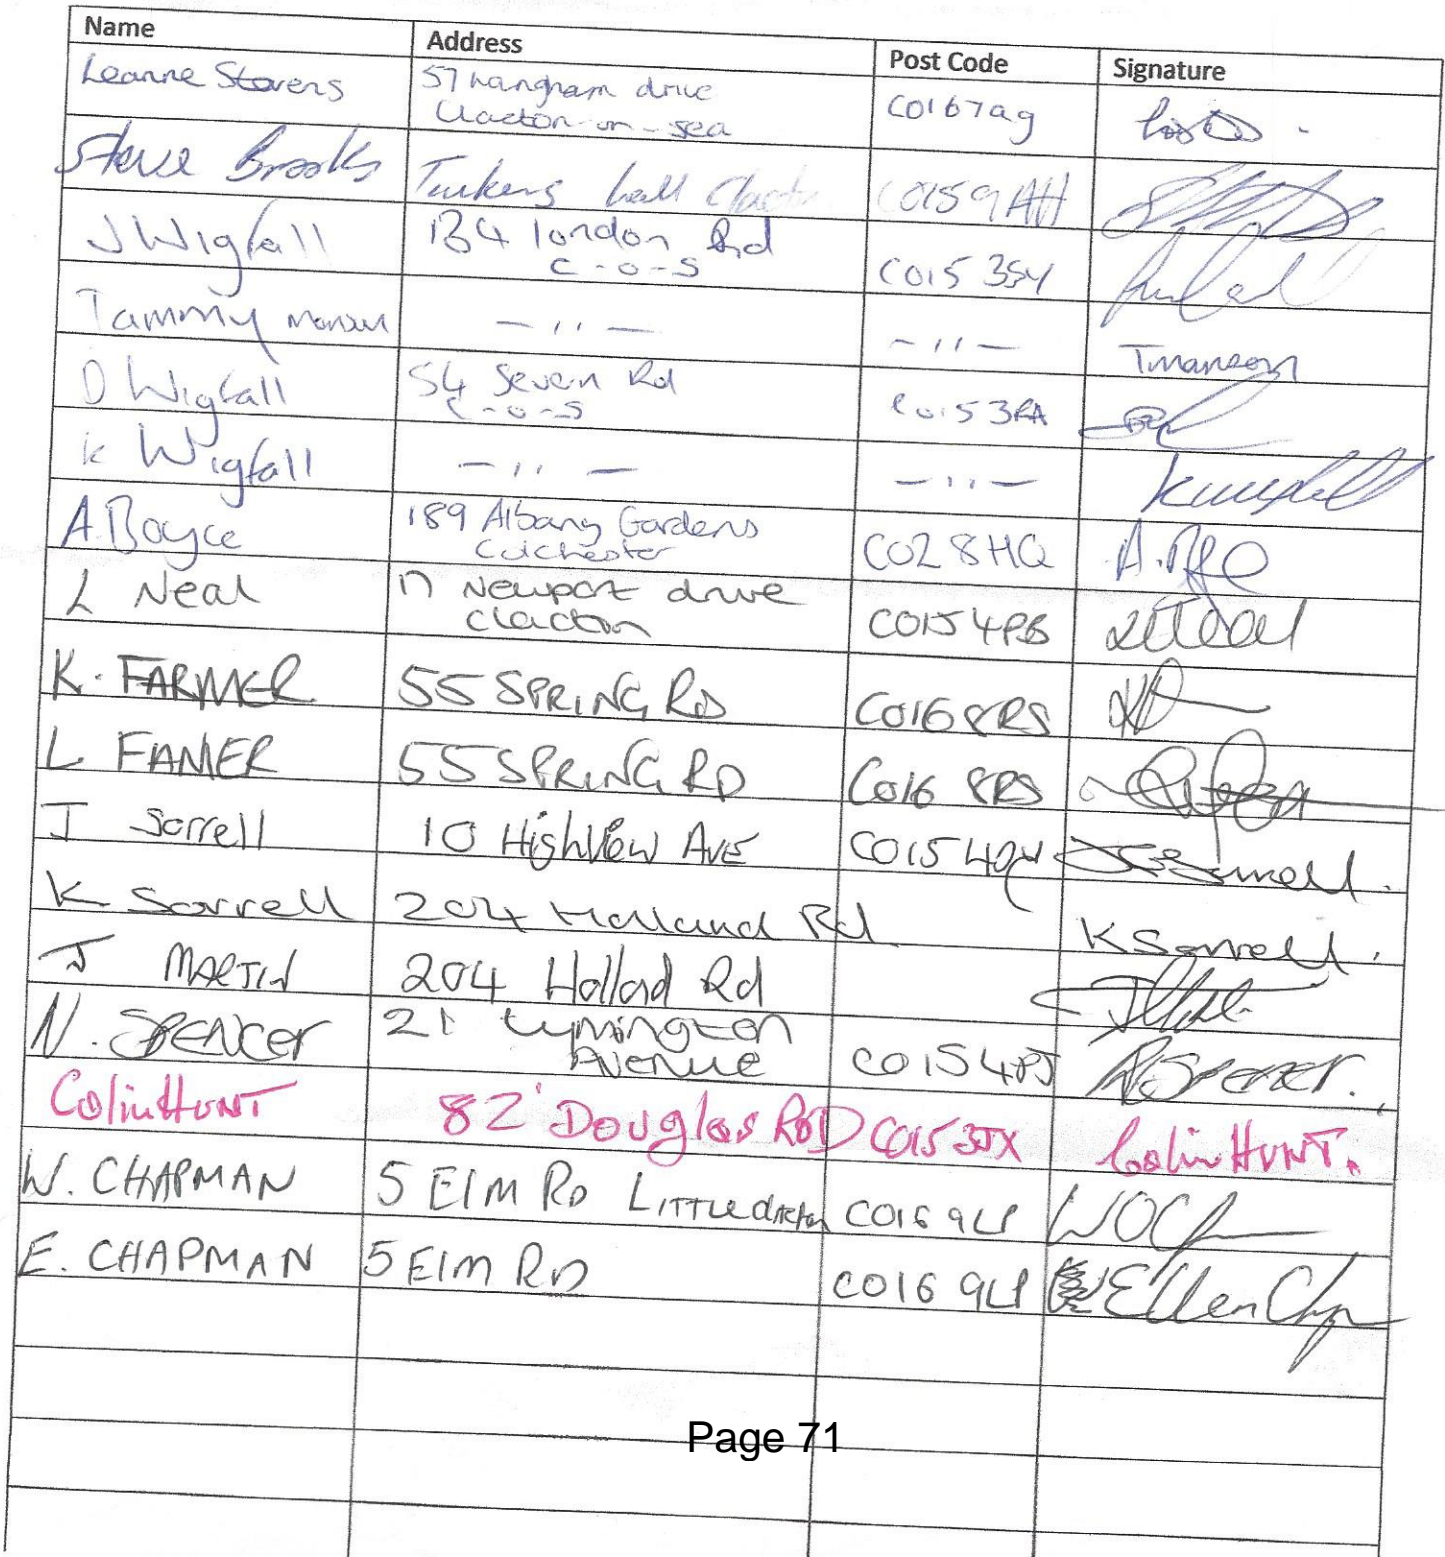 Name Address Post Code Signature
Leanne Stevens 57 Langham drive CO16 7ag
Clacton-on-sea
Steve Brooks Turkens hall Clacton CO15 9AH
J Wigfall 134 london Rd CO15 3SY
C-O-S
Tammy manson — '' — — '' — Tmanson
D Wigfall 54 Seven Rd CO15 3RA
C-O-S
K Wigfall — '' — — '' — KWigfall
A. Boyce 189 Albany Gardens CO2 8HQ
Colchester
L Neal 17 Newport drive CO15 4PB
clacton
K. FARMER 55 SPRING RD CO16 8RS
L FAMER 55 SPRING RD CO16 8RS
J Sorrell 10 Highview AVE CO15 4QY
K Sorrell 204 Holland Rd KSorrell.
J MARTIN 204 Hollad Rd
N. SPENCer 21 Lymington CO15 4PJ NSpencer.
Avenue
Colin HUNT 82 Douglas RoD CO15 3JX Colin HUNT.
W. CHAPMAN 5 ElM RD LITTLE clacton CO16 9LP
E. CHAPMAN 5 ElM RD CO16 9LP Ellen
Page 71